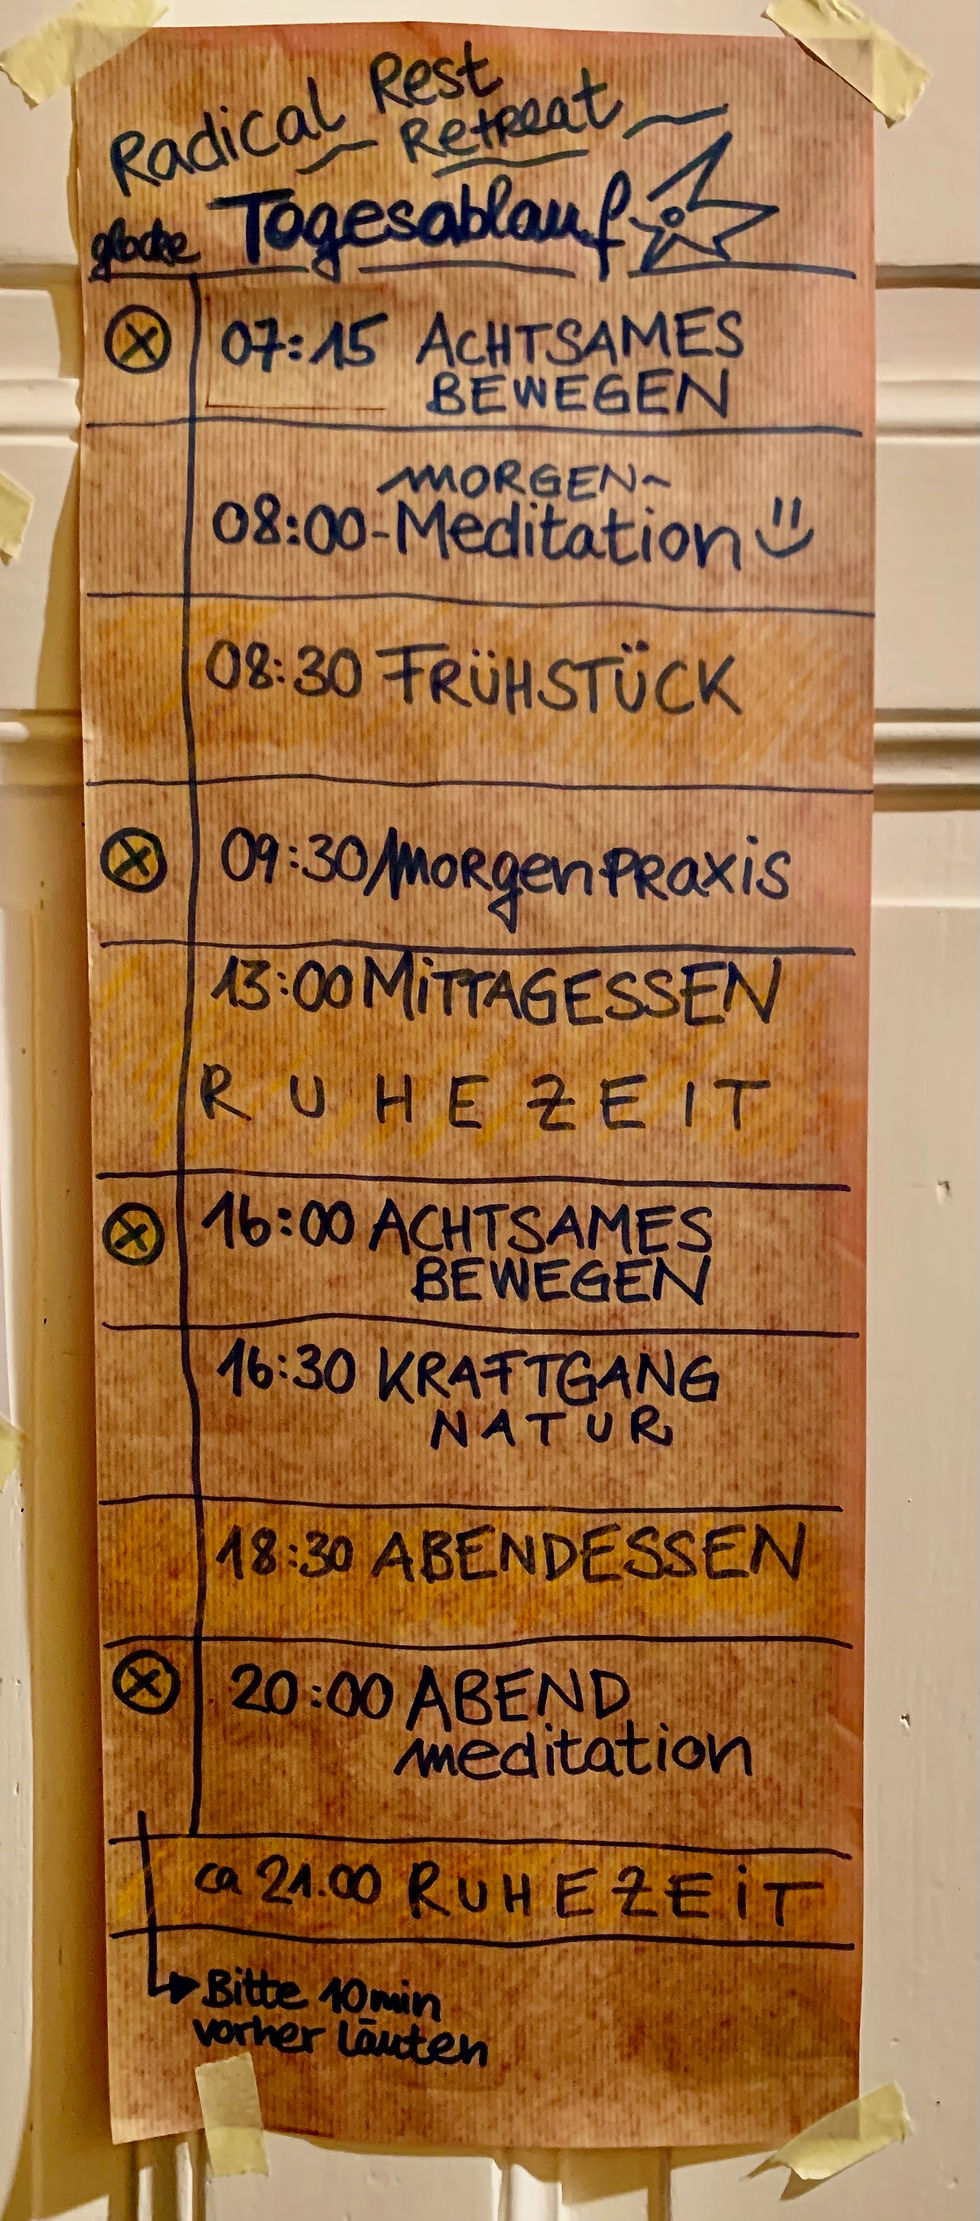 Radical Rest
Retreat
glocke Tagesablauf
07:15 ACHTSAMES
BEWEGEN
MORGEN~
08:00-Meditation
08:30 FRÜHSTÜCK
09:30 Morgenpraxis
13:00 MITTAGESSEN
RUHEZEIT
16:00 ACHTSAMES
BEWEGEN
16:30 KRAFTGANG
NATUR
18:30 ABENDESSEN
20:00 ABEND
meditation
ca 21.00 RUHEZEIT
Bitte 10 min
vorher läuten